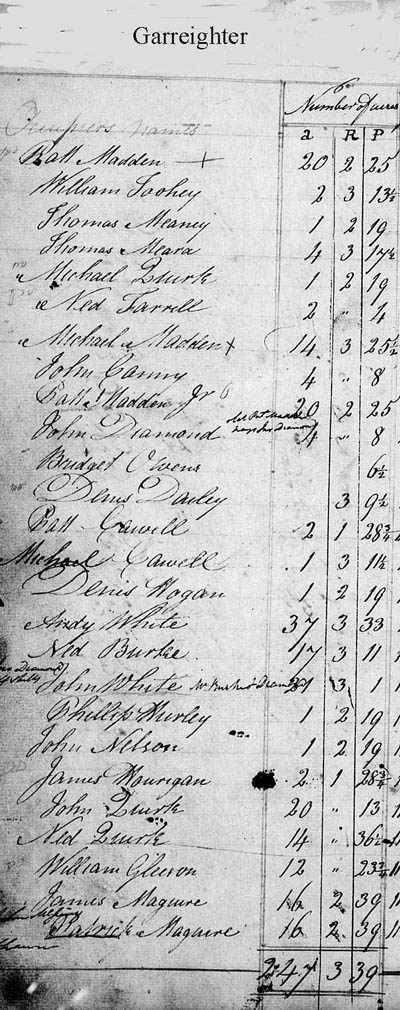 Garreighter
Number of acres
Occupiers names
a R P
Patt Madden + 20 2 25
William Toohey 2 3 13½
Thomas Meaney 1 2 19
Thomas Meara 4 3 17½
Michael Quirk 1 2 19
Ned Farrell 2 " 4
Michael Madden + 14 3 25½
John Canny 4 " 8
Patt Madden Jr 20 2 25
John Diamond 4 " 8
Bridget Owens 6½
Denis Dailey 3 9½
Patt Cawell 2 1 28¾
Michael Cawell 1 3 11½
Denis Hogan 1 2 19
Andy White 37 3 33
Ned Burke 17 3 11
John White 21 3 1
Phillip Hurley 1 2 19
John Nelson 1 2 19
James Hourigan 2 1 28¾
John Quirk 20 " 13
Ned Quirk 14 " 36½
William Gleeson 12 " 23¾
James Maguire 16 2 39
Patrick Maguire 16 2 39
247 3 39